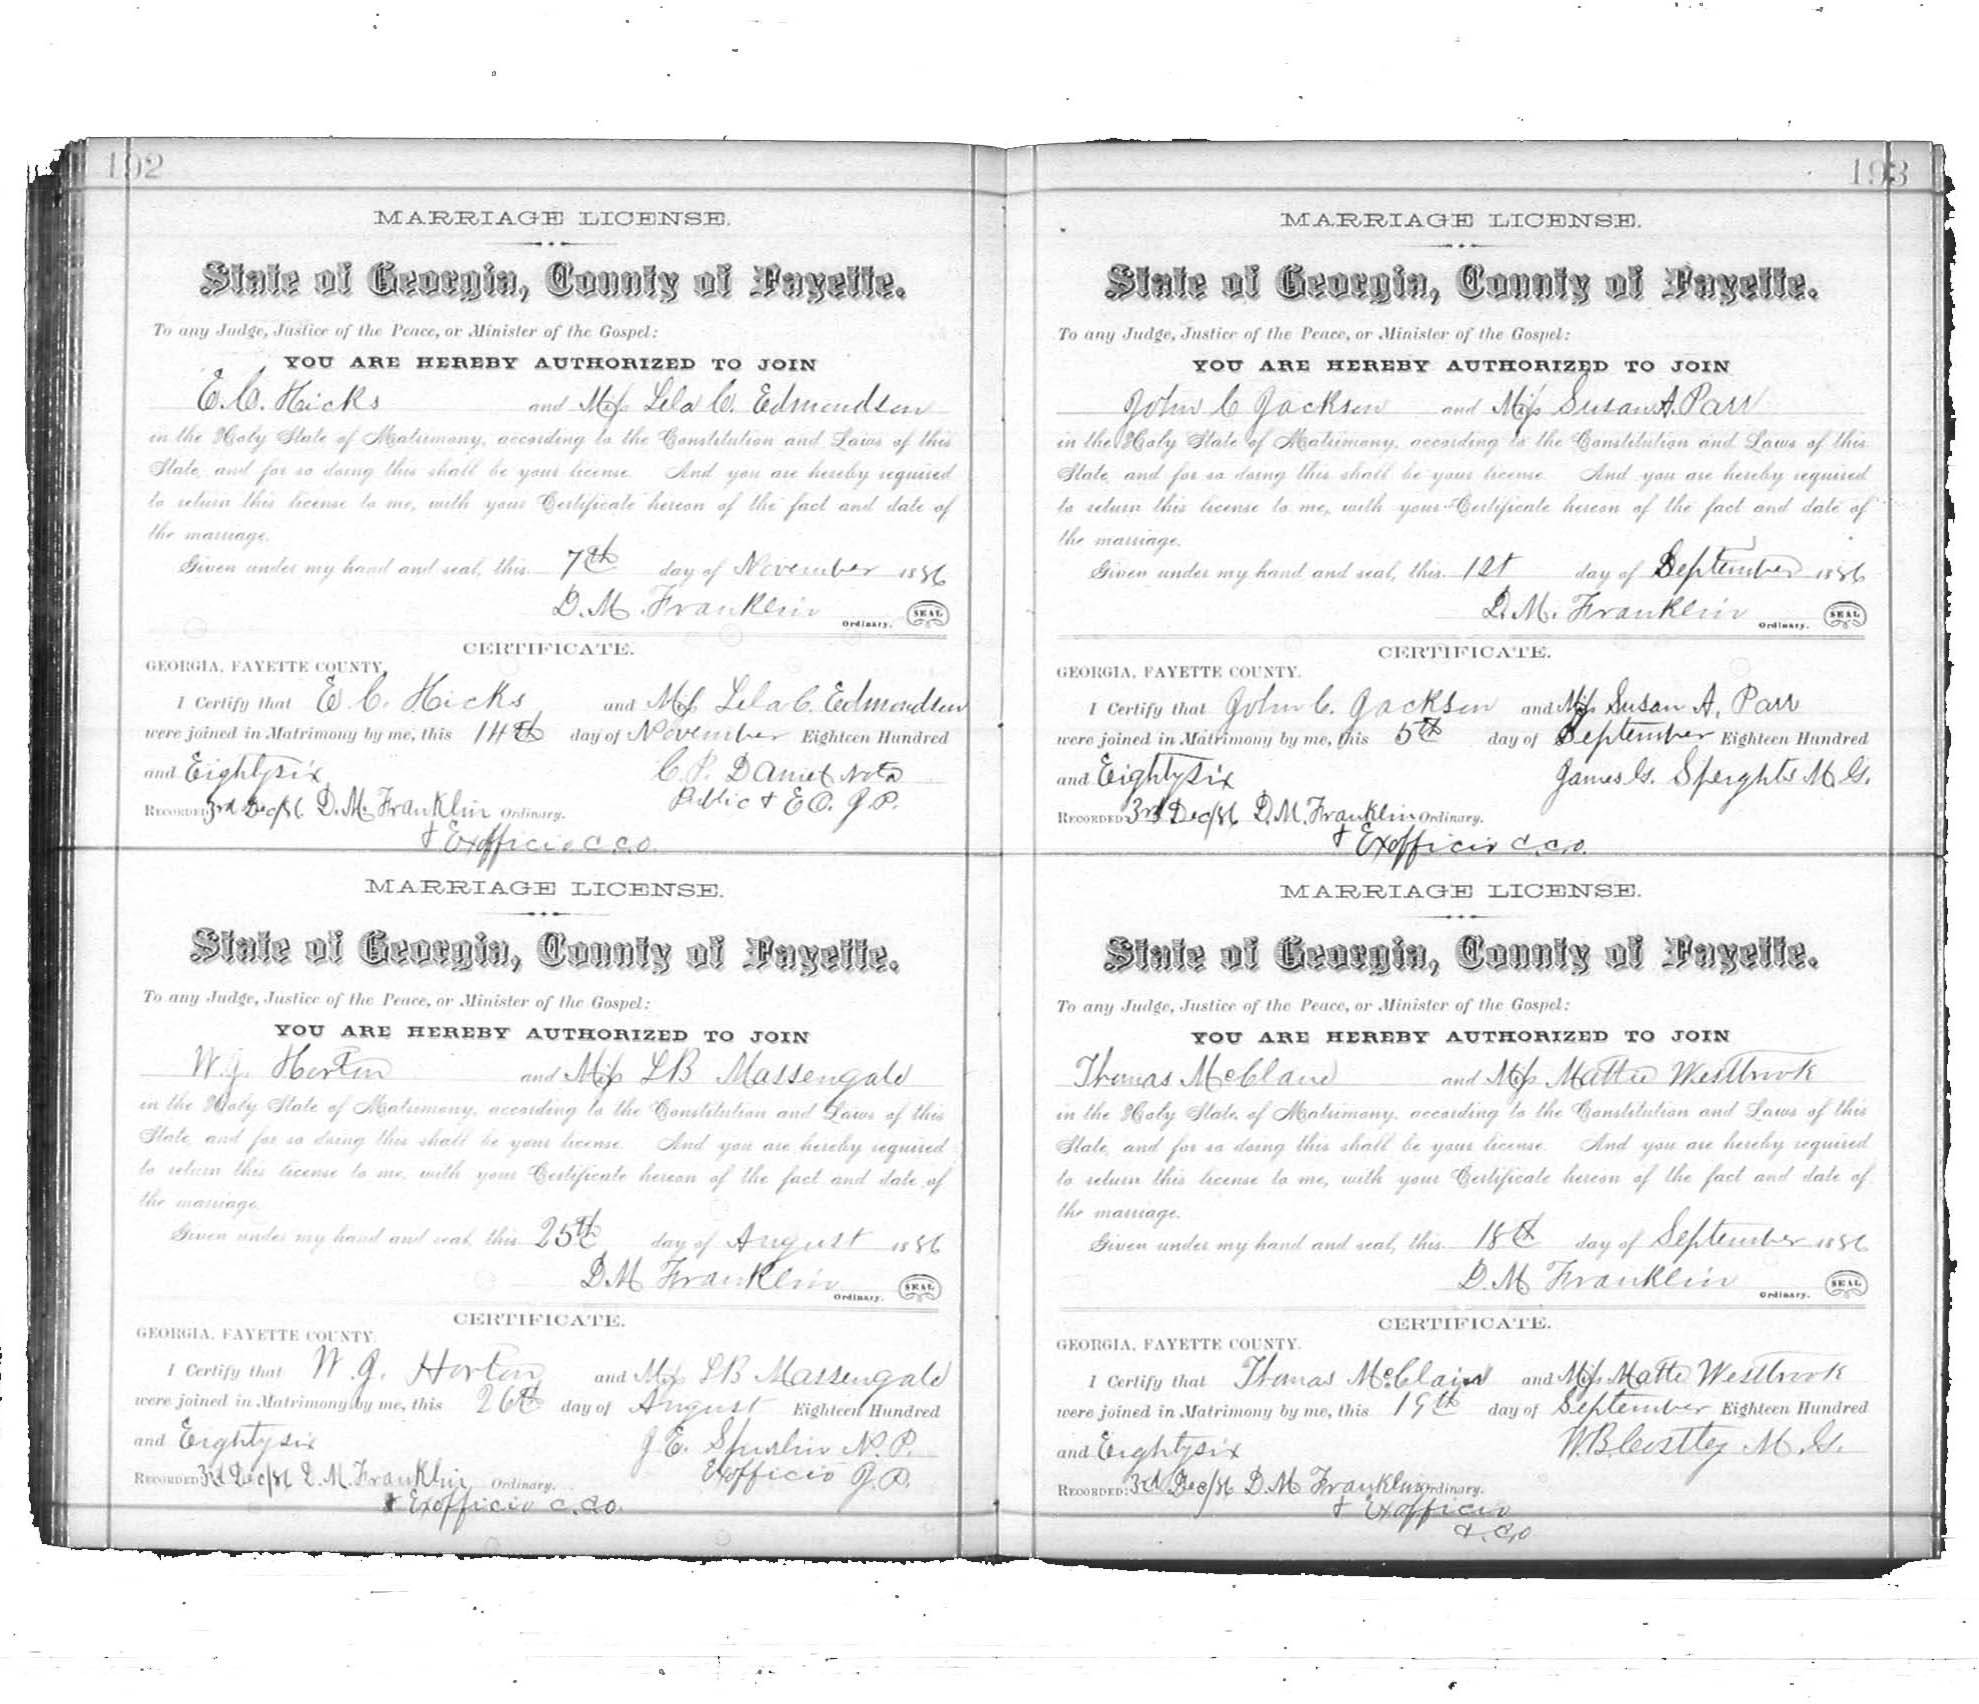 192
MARRIAGE LICENSE.
State of Georgia, County of Fayette.
To any Judge, Justice of the Peace, or Minister of the Gospel:
YOU ARE HEREBY AUTHORIZED TO JOIN
E. C. Hicks and Miss Lela C. Edmondson
in the Holy State of Matrimony, according to the Constitution and Laws of this
State, and for so doing this shall be your license. And you are hereby required
to return this license to me, with your Certificate hereon of the fact and date of
the marriage.
Given under my hand and seal, this 7th day of November 1886
D. M. Franklin Ordinary. SEAL
CERTIFICATE.
GEORGIA, FAYETTE COUNTY,
I Certify that E C. Hicks and Miss Lela C. Edmondson
were joined in Matrimony by me, this 14th day of November Eighteen Hundred
and Eighty six C. P. Daniel Nota
Public & E O. J. P.
RECORDED 3rd Dec/86 D. M. Franklin Ordinary.
& Exofficio C.C.O.
MARRIAGE LICENSE.
State of Georgia, County of Fayette.
To any Judge, Justice of the Peace, or Minister of the Gospel:
YOU ARE HEREBY AUTHORIZED TO JOIN
W. J. Horton and Miss L B Massengale
in the Holy State of Matrimony, according to the Constitution and Laws of this
State, and for so doing this shall be your license. And you are hereby required
to return this license to me, with your Certificate hereon of the fact and date of
the marriage.
Given under my hand and seal, this 25th day of August 1886
D. M Franklin Ordinary. SEAL
CERTIFICATE.
GEORGIA, FAYETTE COUNTY.
I Certify that W. J. Horton and Miss L B Massengale
were joined in Matrimony by me, this 26th day of August Eighteen Hundred
and Eighty six J. E. Spurlin N. P.
Exofficio J. P.
RECORDED 3rd Dec/86 D. M. Franklin Ordinary.
& Exofficio C. C.O.
193
MARRIAGE LICENSE.
State of Georgia, County of Fayette.
To any Judge, Justice of the Peace, or Minister of the Gospel:
YOU ARE HEREBY AUTHORIZED TO JOIN
John C Jackson and Miss Susan A. Parr
in the Holy State of Matrimony, according to the Constitution and Laws of this
State, and for so doing this shall be your license. And you are hereby required
to return this license to me, with your Certificate hereon of the fact and date of
the marriage.
Given under my hand and seal, this 1st day of September 1886
D. M. Franklin Ordinary. SEAL
CERTIFICATE.
GEORGIA, FAYETTE COUNTY.
I Certify that John C. Jackson and Miss Susan A. Parr
were joined in Matrimony by me, this 5th day of September Eighteen Hundred
and Eighty six James G. Speights M. G.
RECORDED 3rd Dec/86 D. M. Franklin Ordinary.
& Exofficio C.C.O.
MARRIAGE LICENSE.
State of Georgia, County of Fayette.
To any Judge, Justice of the Peace, or Minister of the Gospel:
YOU ARE HEREBY AUTHORIZED TO JOIN
Thomas McClane and Miss Mattie Westbrook
in the Holy State of Matrimony, according to the Constitution and Laws of this
State, and for so doing this shall be your license. And you are hereby required
to return this license to me, with your Certificate hereon of the fact and date of
the marriage.
Given under my hand and seal, this 18th day of September 1886
D. M Franklin Ordinary. SEAL
CERTIFICATE.
GEORGIA, FAYETTE COUNTY.
I Certify that Thomas McClain and Miss Matte Westbrook
were joined in Matrimony by me, this 19th day of September Eighteen Hundred
and Eighty six W. B. M. G.
RECORDED: 3rd Dec/86 D. M Franklin Ordinary.
& Exofficio
C. C.O